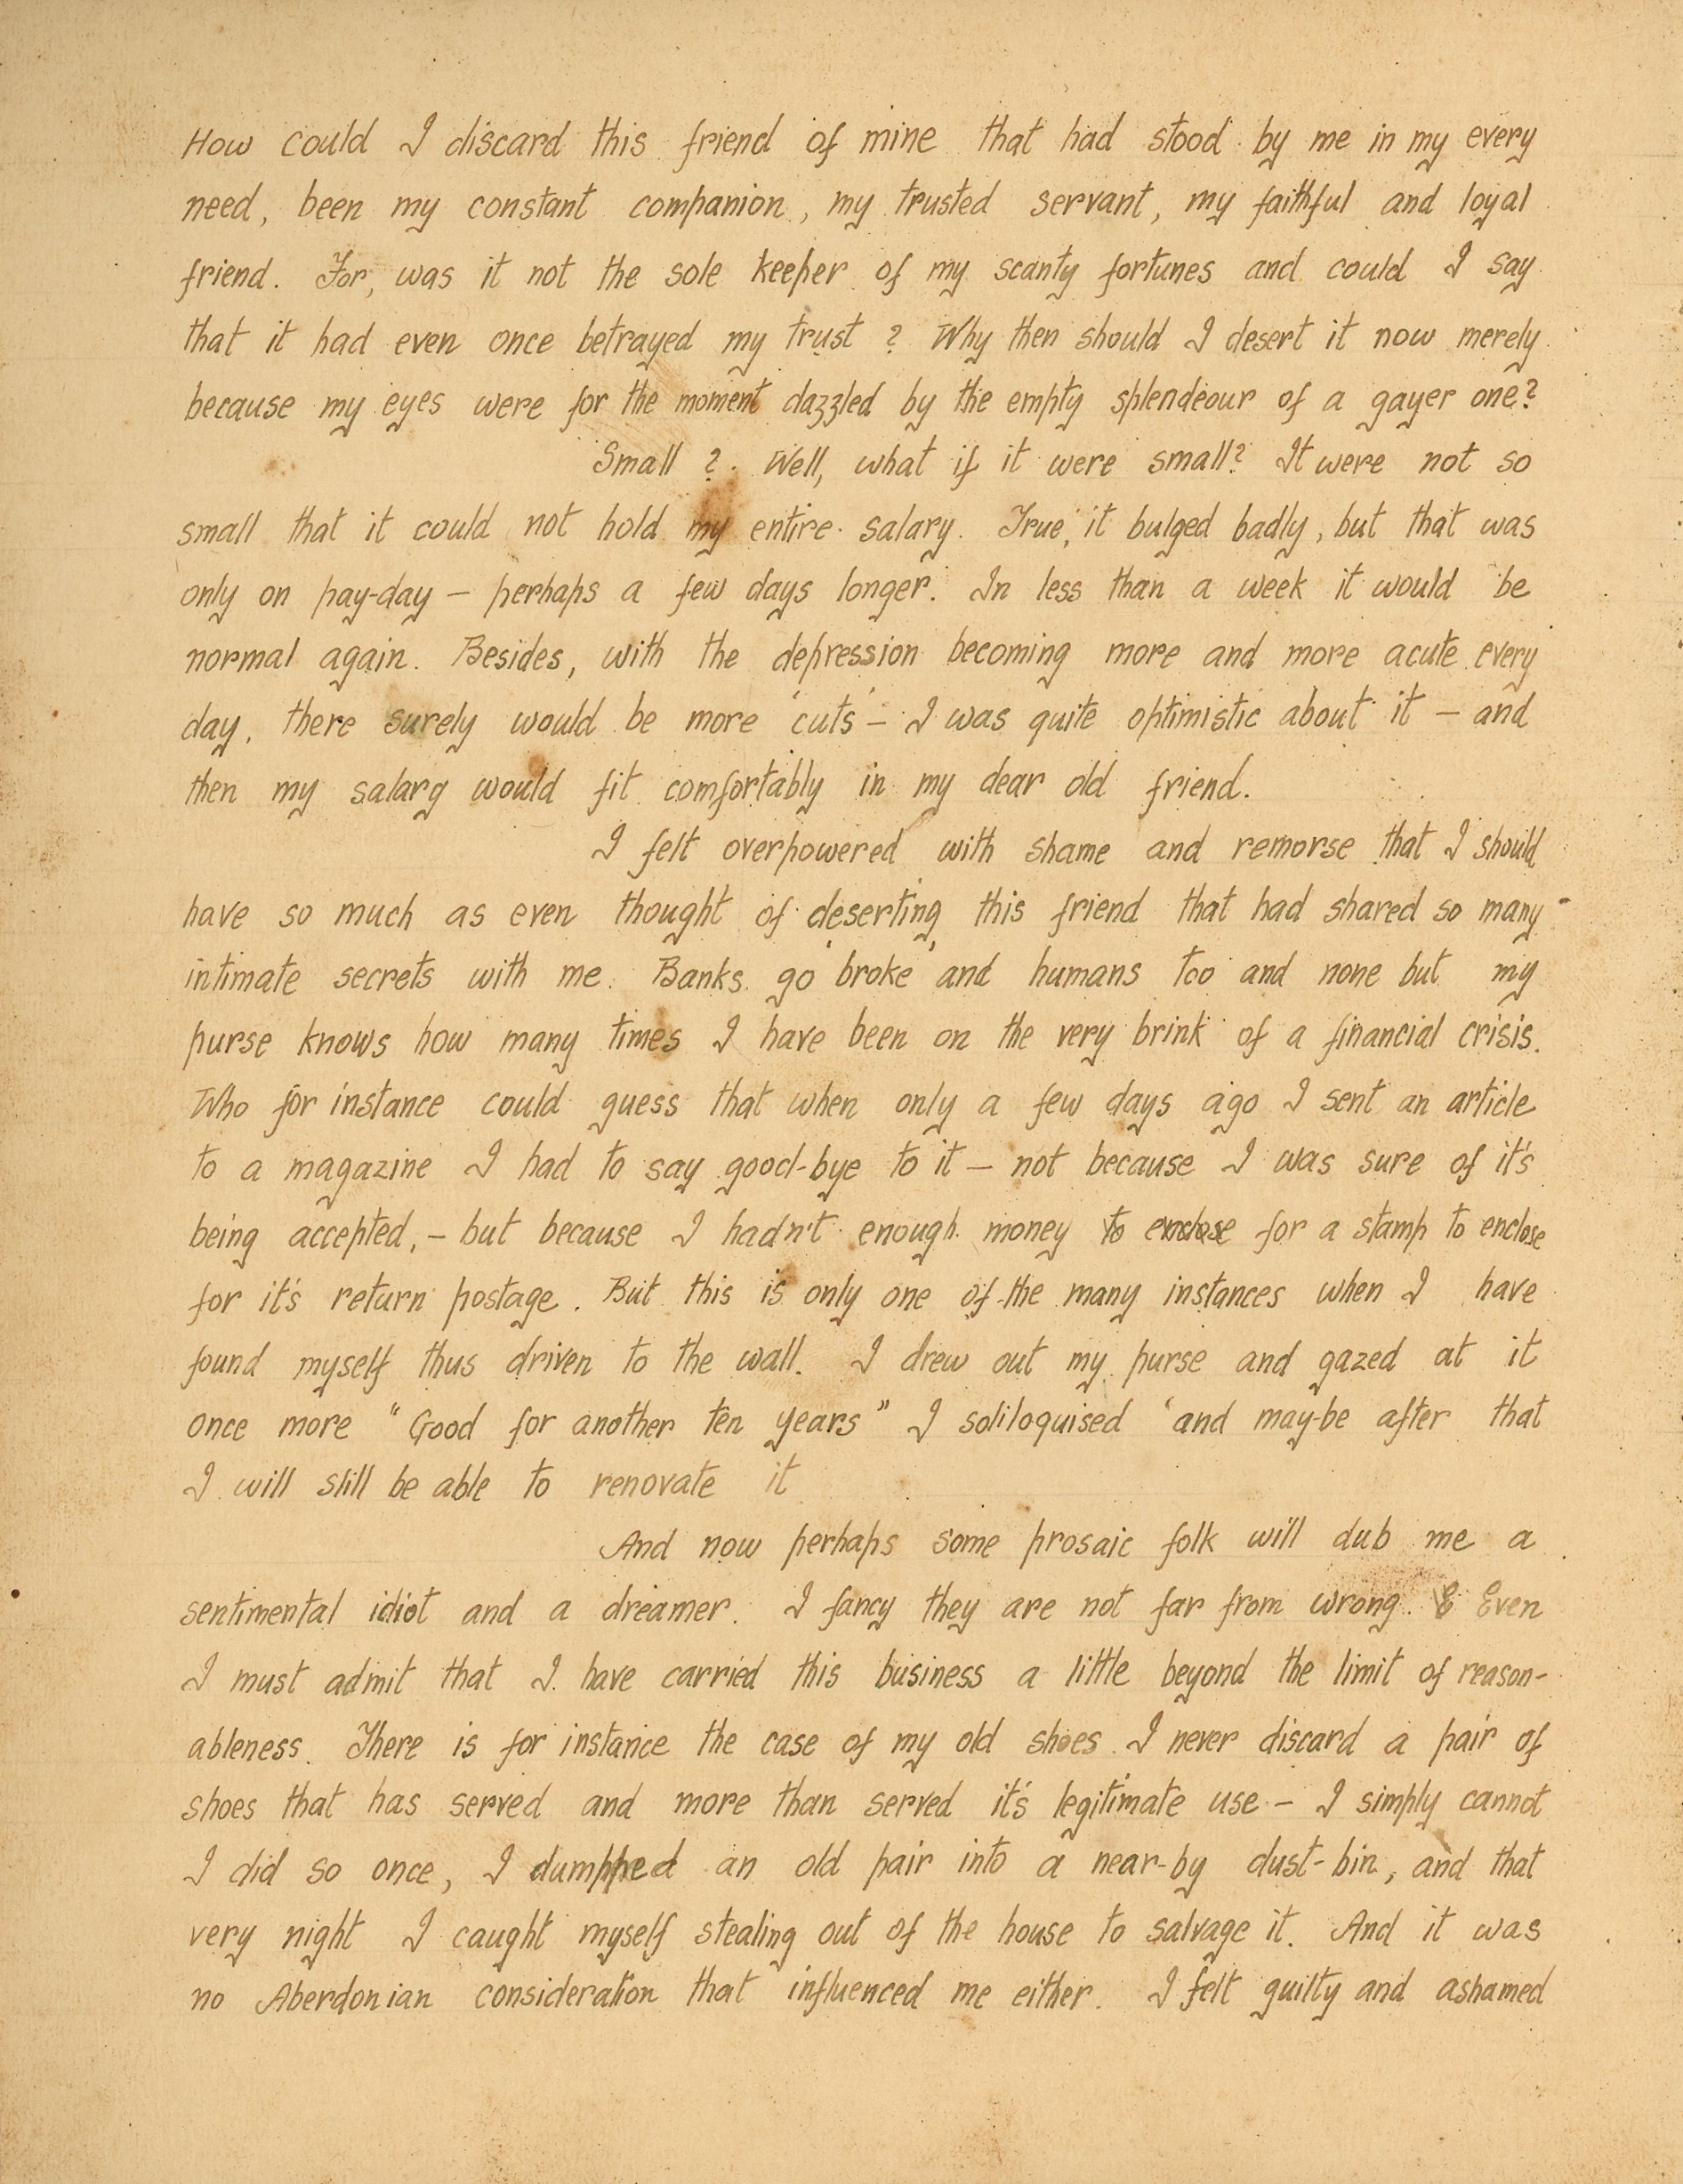 How could I discard this friend of mine that had stood by me in my every
need, been my constant companion, my trusted servant, my faithful and loyal
friend. For, was it not the sole keeper of my scanty fortunes and could I say
that it had even once betrayed my trust ? Why then should I desert it now merely
because my eyes were for the moment dazzled by the empty splendeour of a gayer one?
Small ? Well, what if it were small? It were not so
small that it could not hold my entire salary. True, it bulged badly, but that was
only on pay-day – perhaps a few days longer. In less than a week it would be
normal again. Besides, with the depression becoming more and more acute every
day, there surely would be more 'cuts' – I was quite optimistic about it – and
then my salary would fit comfortably in my dear old friend.
I felt overpowered with shame and remorse that I should
have so much as even thought of deserting this friend that had shared so many
intimate secrets with me. Banks go 'broke' and humans too and none but my
purse knows how many times I have been on the very brink of a financial crisis.
Who for instance could guess that when only a few days ago I sent an article
to a magazine I had to say good-bye to it – not because I was sure of it's
being accepted, – but because I hadn't enough money to enclose for a stamp to enclose
for it's return postage. But this is only one of the many instances when I have
found myself thus driven to the wall. I drew out my purse and gazed at it
once more "Good for another ten years" I soliloquised 'and may-be after that
I will still be able to renovate it
And now perhaps some prosaic folk will dub me a
sentimental idiot and a dreamer. I fancy they are not far from wrong. E Even
I must admit that I have carried this business a little beyond the limit of reason-
ableness. There is for instance the case of my old shoes. I never discard a pair of
shoes that has served and more than served it's legitimate use – I simply cannot
I did so once, I dumpped an old pair into a near-by dust-bin, and that
very night I caught myself stealing out of the house to salvage it. And it was
no Aberdonian consideration that influenced me either. I felt guilty and ashamed